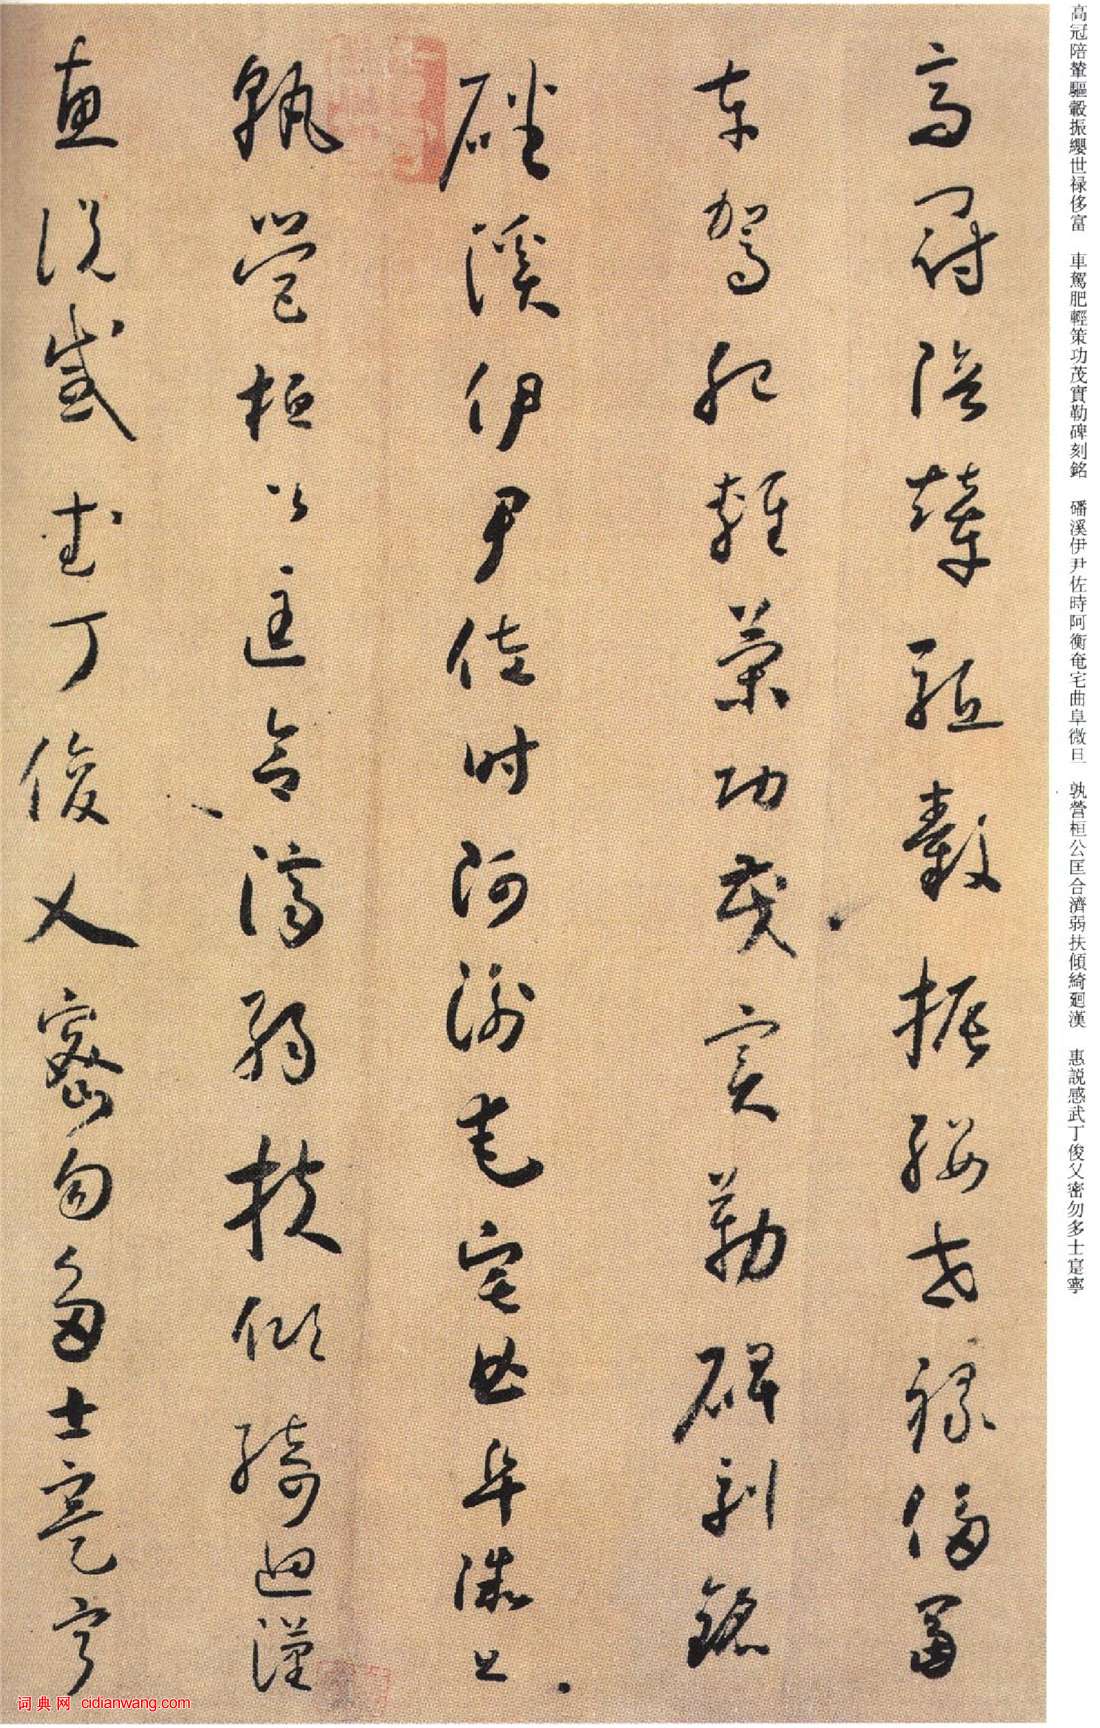 高冠陪輦驅轂振纓世禄侈富　車駕肥輕策功茂實勒碑刻銘　磻溪伊尹佐時阿衡奄宅曲阜微旦　孰營桓公匡合濟弱扶傾綺廻漢　惠説感武丁俊乂密勿多士寔寧
高冠陪輦驅轂振纓世禄侈富
車駕肥輕策功茂實勒碑刻銘
磻溪伊尹佐時阿衡奄宅曲阜微旦
孰營桓公匡合濟弱扶傾綺迴漢
惠説感武丁俊乂密勿多士寔寧
词典网 cidianwang.com